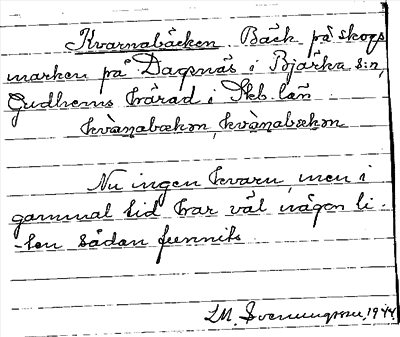 Kvarnabäcken. Bäck på skogs
marken på Dagsnäs i Bjärka s:n,
Gudhems härad i Skb. län
kvàṇabækən, kvàṇabækən
Nu ingen kvarn, men i
gammal tid har väl någon li-
-ten sådan funnits
Svenungsson, 1944.